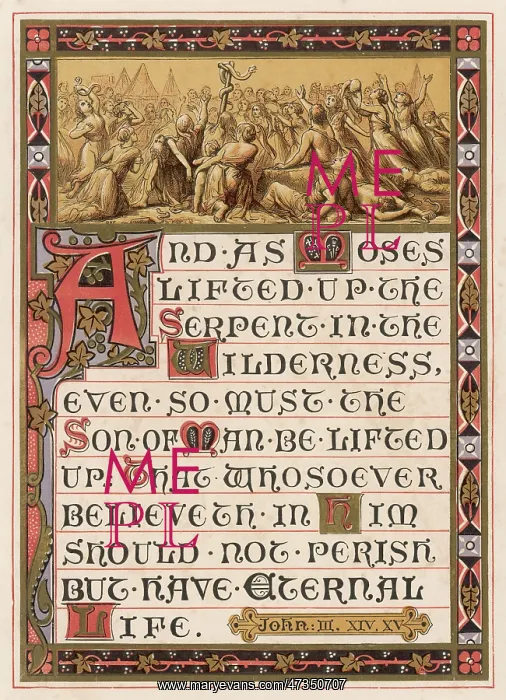 AND·AS MOSES
LIFTED·UP·THE
SERPENT·IN·THE
WILDERNESS,
EVEN·SO·MUST·THE
SON·OF MAN·BE·LIFTED
UP. THAT·WHOSOEVER
BELIEVETH·IN HIM
SHOULD·NOT·PERISH
BUT·HAVE·ETERNAL
LIFE.
JOHN:III, XIV. XV
ME
PL
ME
PL
www.maryevans.com/47350707